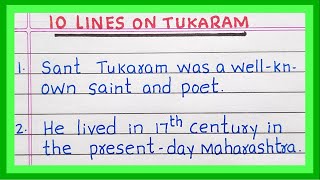 10 LINES ON TUKARAM
1. Sant Tukaram was a well-kn-
own saint and poet.
2. He lived in 17th century in
the present-day Maharashtra.